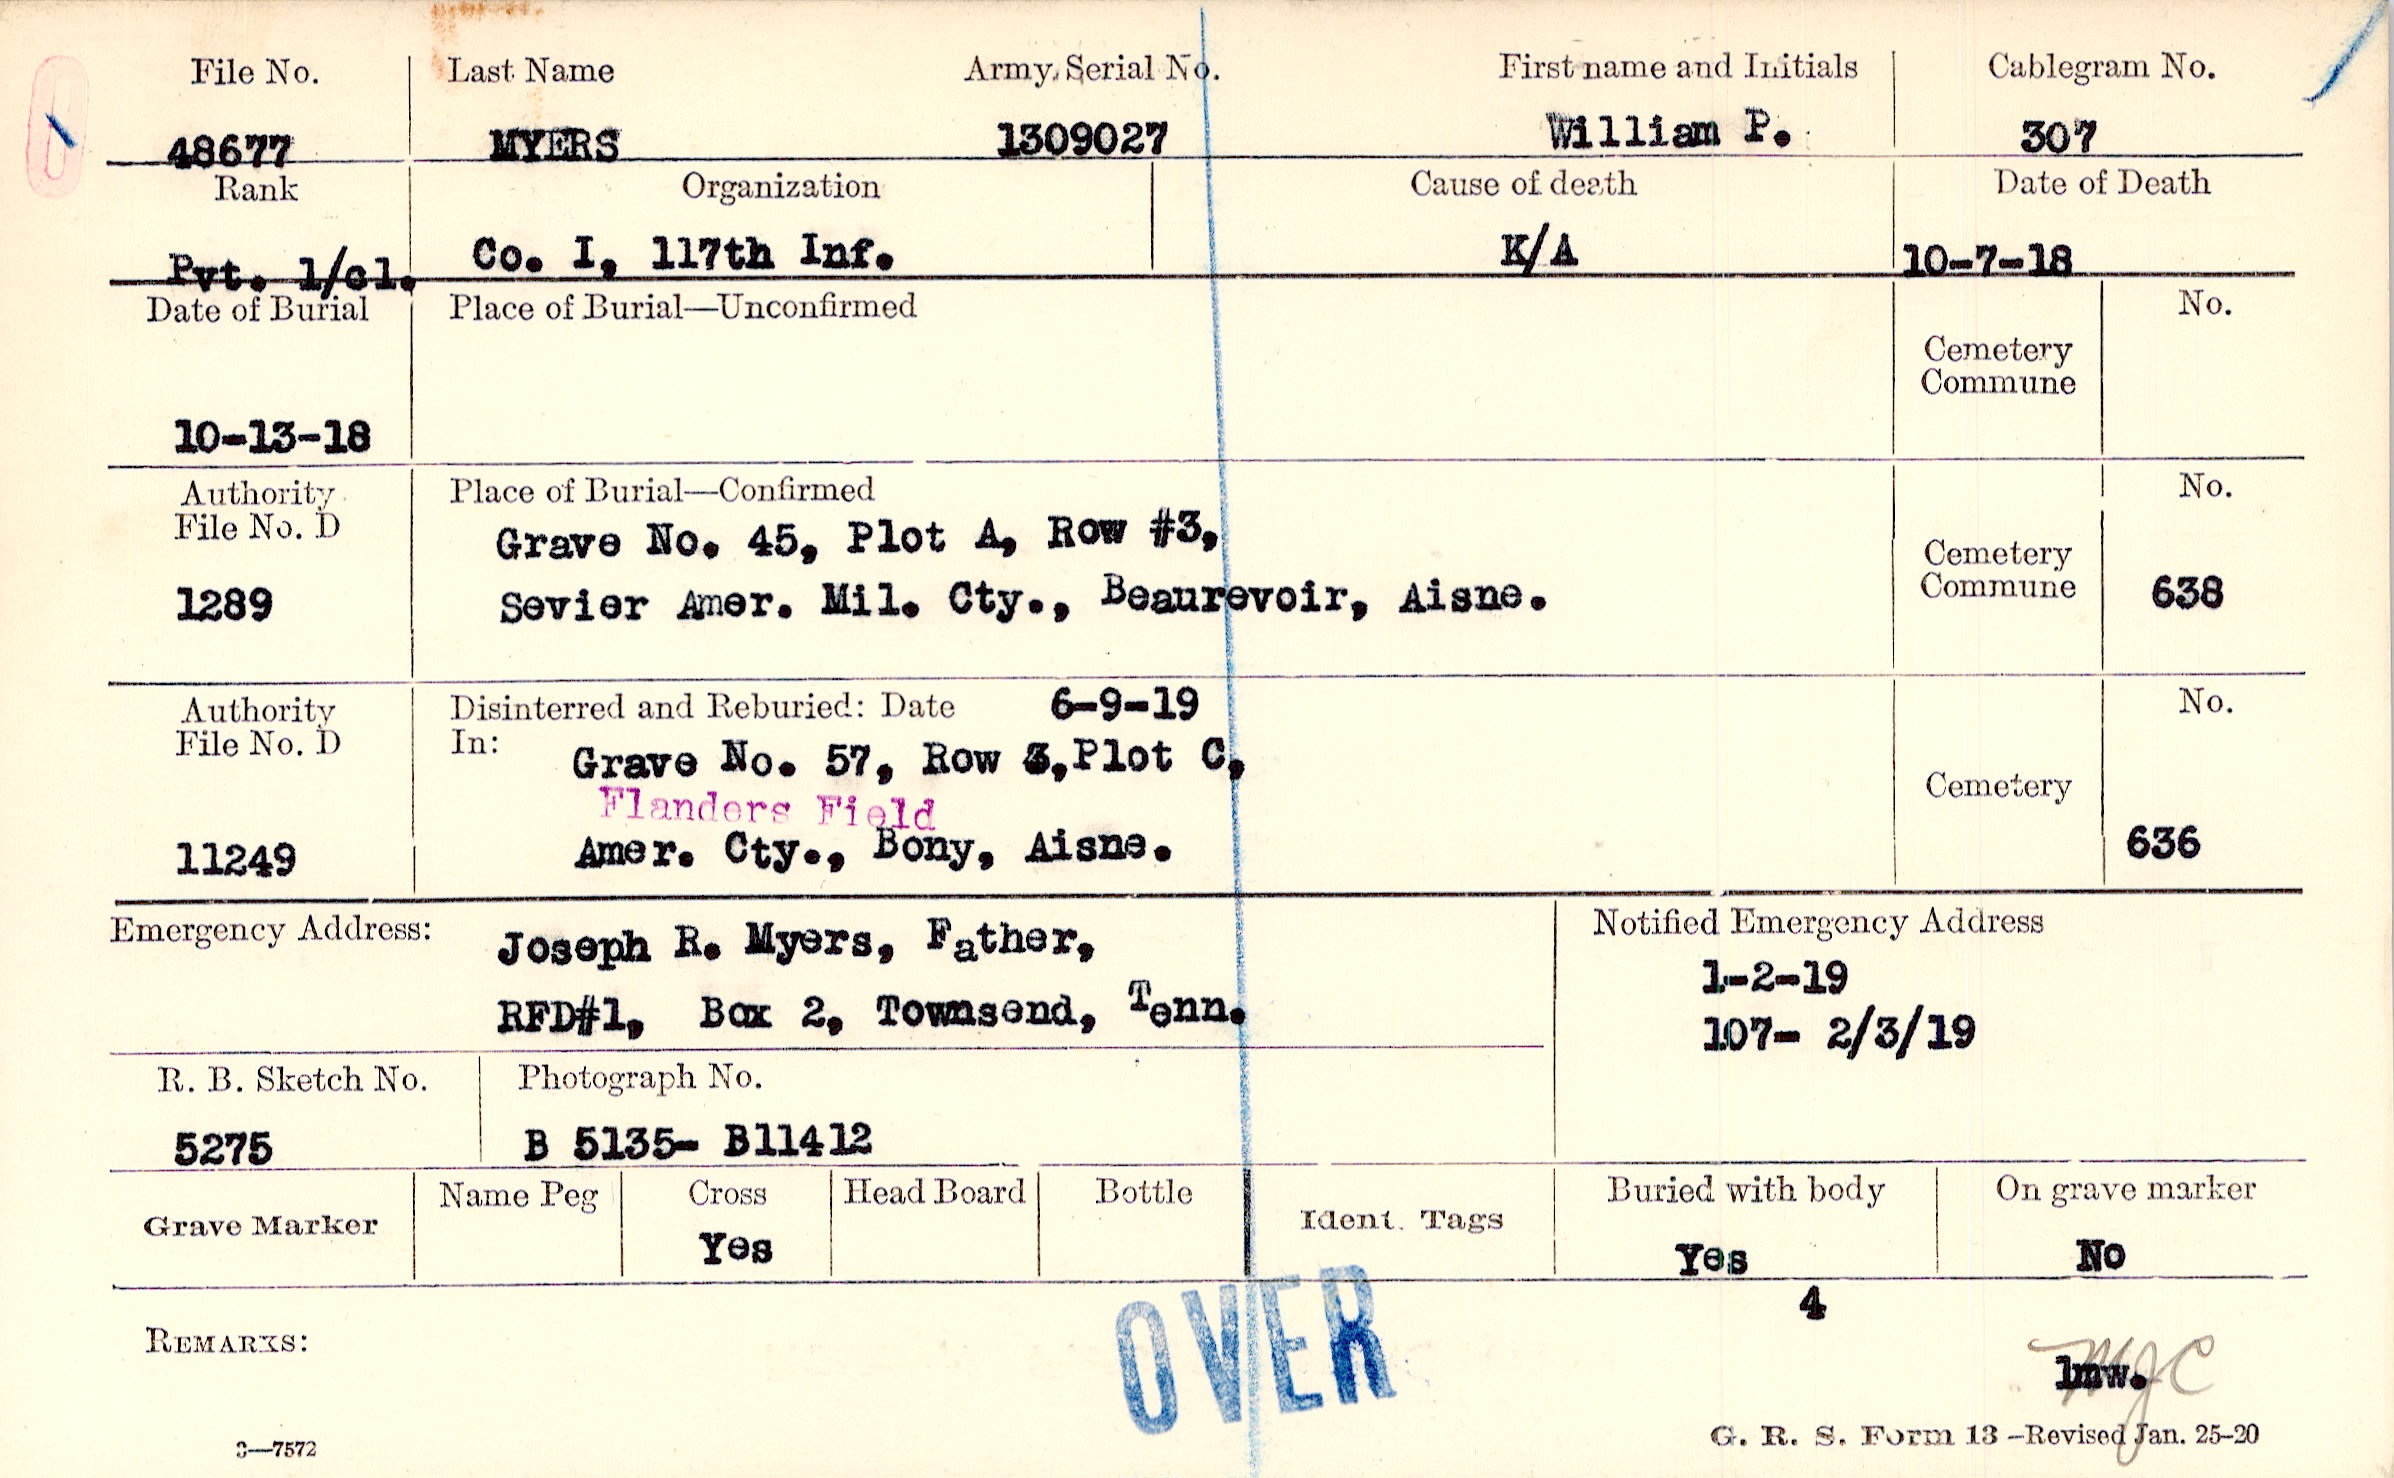 File No. Last Name Army Serial No. First name and Initials Cablegram No.
48677 MYERS 1309027 William P. 307
Rank Organization Cause of death Date of Death
Pvt. 1/cl. Co. I, 117th Inf. K/A 10-7-18
Date of Burial Place of Burial—Unconfirmed No.
Cemetery
Commune
10-13-18
Authority Place of Burial—Confirmed No.
File No. D Grave No. 45, Plot A, Row #3,
Cemetery
1289 Sevier Amer. Mil. Cty., Beaurevoir, Aisne. Commune 638
Authority Disinterred and Reburied: Date 6-9-19 No.
File No. D In: Grave No. 57, Row 3,Plot C,
Flanders Field Cemetery
11249 Amer. Cty., Bony, Aisne. 636
Emergency Address: Joseph R. Myers, Father, Notified Emergency Address
1-2-19
RFD#1, Box 2, Townsend, Tenn. 107- 2/3/19
R. B. Sketch No. Photograph No.
5275 B 5135- B11412
Grave Marker Name Peg Cross Head Board Bottle Ident. Tags Buried with body On grave marker
Yes Yes No
4
OVER
REMARKS:
lmw. MJC
3—7572 G. R. S. Form 13—Revised Jan. 25-20